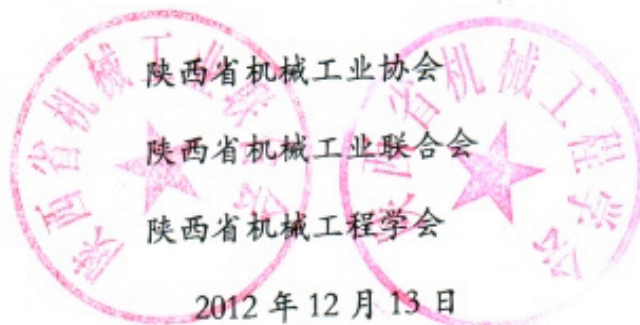 陕西省机械工业协会
陕西省机械工业联合会
陕西省机械工程学会
2012年12月13日
陕西省机械工程学会